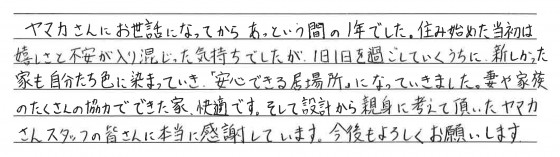 ヤマカさんにお世話になってから あっという間の1年でした。住み始めた当初は
嬉しさと不安が入り混じった気持ちでしたが、1日1日を過ごしていくうちに、新しかった
家も自分たち色に染まっていき、「安心できる居場所」になっていきました。妻や家族
のたくさんの協力でできた家、快適です。そして設計から親身に考えて頂いたヤマカ
さんスタッフの皆さんに本当に感謝しています。今後もよろしくお願いします